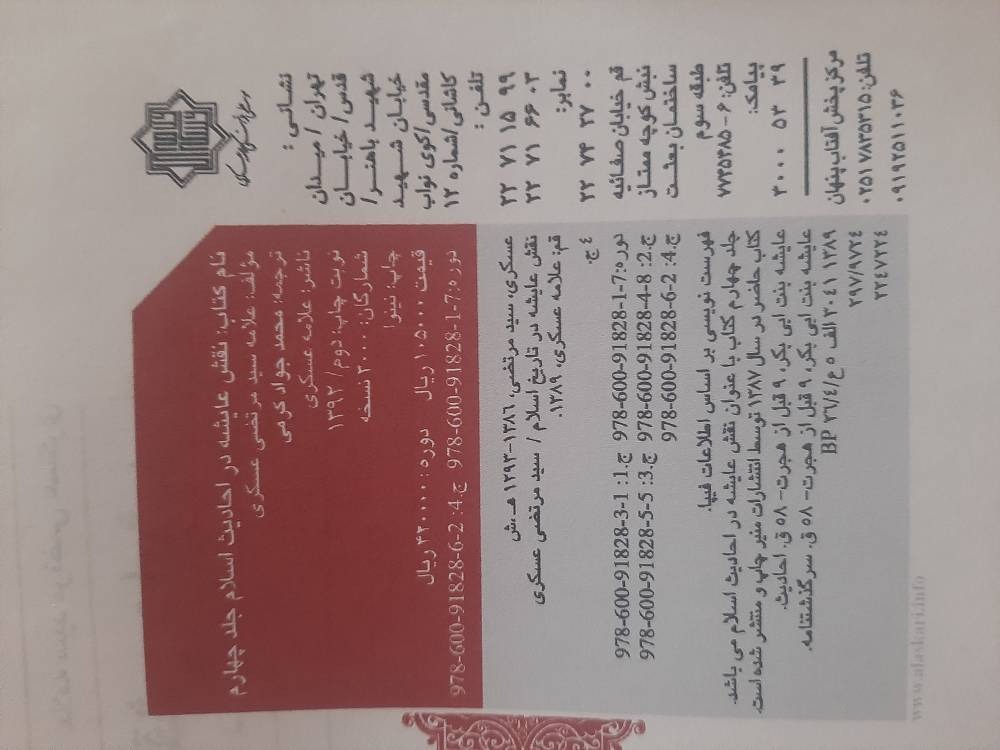 نام کتاب: نقش عایشه در احادیث اسلام جلد چهارم
مؤلف: علامه سید مرتضی عسکری
ترجمه: محمد جواد کرمی
ناشر: علامه عسکری
نوبت چاپ: دوم/ ۱۳۹۲
شمارگان: ۳۰۰۰ نسخه
چاپ: نینوا
قیمت ۱۰۵۰۰۰ ریال دوره: ۴۲۰۰۰۰ ریال
دوره: 7-1-91828-600-978 ج.4: 2-6-91828-600-978
عسکری، سید مرتضی، ۱۳۸۶-۱۲۹۳ هـ.ش
نقش عایشه در تاریخ اسلام / سید مرتضی عسکری
قم: علامه عسکری، ۱۳۸۹.
٤ ج.
دوره: 7-1-91828-600-978 ج.1: 1-3-91828-600-978
ج.2: 8-4-91828-600-978 ج.3: 5-5-91828-600-978
ج.4: 2-6-91828-600-978
فهرست نویسی بر اساس اطلاعات فیپا.
جلد چهارم کتاب با عنوان نقش عایشه در احادیث اسلام می باشد.
کتاب حاضر در سال ۱۳۸۷ توسط انتشارات منیر چاپ و منتشر شده است.
عایشه بنت ابی بکر، ۹ قبل از هجرت- ۵۸ ق. احادیث.
عایشه بنت ابی بکر، ۹ قبل از هجرت- ۵۸ ق. سرگذشتنامه.
۱۳۸۹ ۳۰۴۱ الف ۵ ع/۲۶/٤ BP
۲۹۷/۹۷۲٤
۲۲٤۷۲۲٤
نشانی:
تهران / میدان
قدس/ خیابان
شهید باهنر/
خیابان شهید
مقدسی/کوی نواب
کاشانی/شماره ۱۲
تلفن:
۲۲ ۷۱ ۱۵ ۹۹
۲۲ ۷۱ ۶۶ ۰۳
نمابر:
۲۲ ۷۴ ۲۷ ۰۰
قم خیابان صفائیه
نبش کوچه ممتاز
ساختمان بعثت
طبقه سوم
تلفن: ۶ - ۷۷۳۵۴۸۵
پیامک:
۳۰۰۰ ۵۳ ۳۹
مرکز پخش آفتاب پنهان
تلفن: ۰۲۵۱۷۸۳۵۳۱۵
۰۹۱۹۲۵۱۱۰۳۶
www.alaskari.info